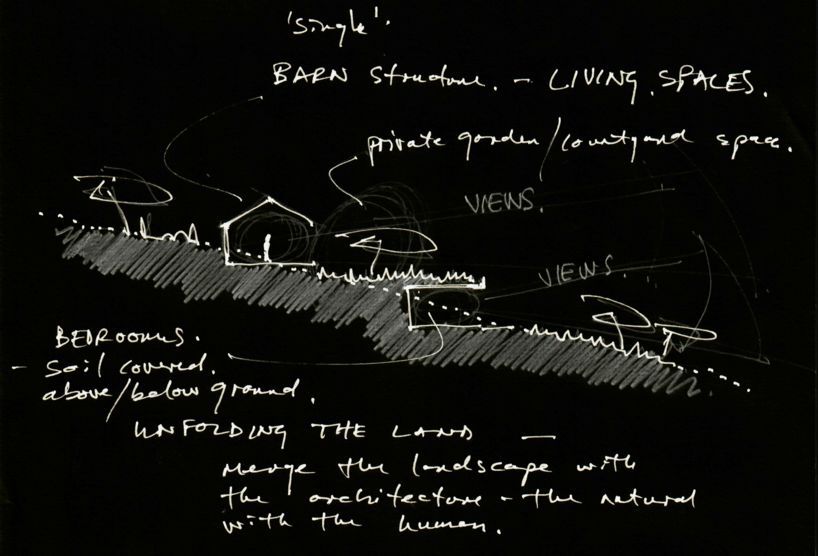 'single'.
BARN structure. – LIVING SPACES.
private garden/courtyard space.
VIEWS.
VIEWS.
BEDROOMS.
- soil covered.
above/below ground.
UNFOLDING THE LAND —
merge the landscape with
the architecture - the natural
with the human.